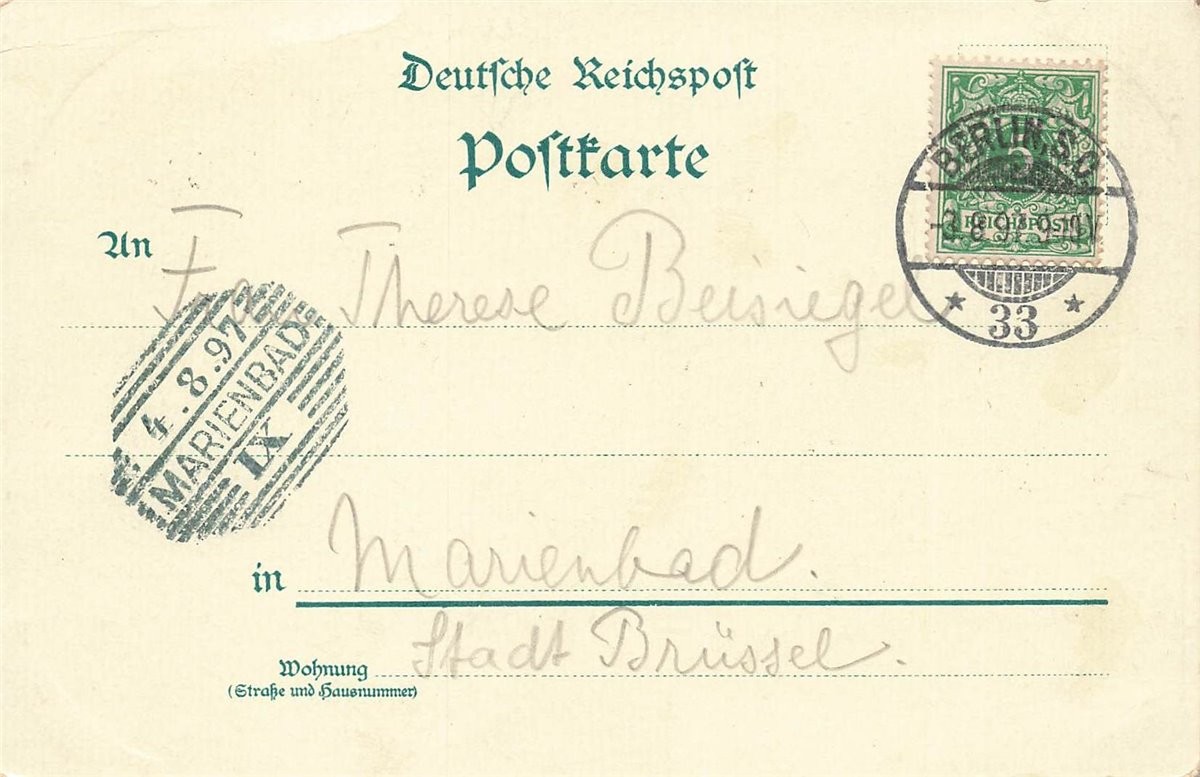 Deutsche Reichspost
Postkarte
BERLIN, S.O.
5
REICHSPOST
3.8.97. 9-10V
* 33 *
An Frau Therese Beisiegel
4.8.97
MARIENBAD
IX
in Marienbad.
Stadt Brüssel.
Wohnung
(Straße und Hausnummer)